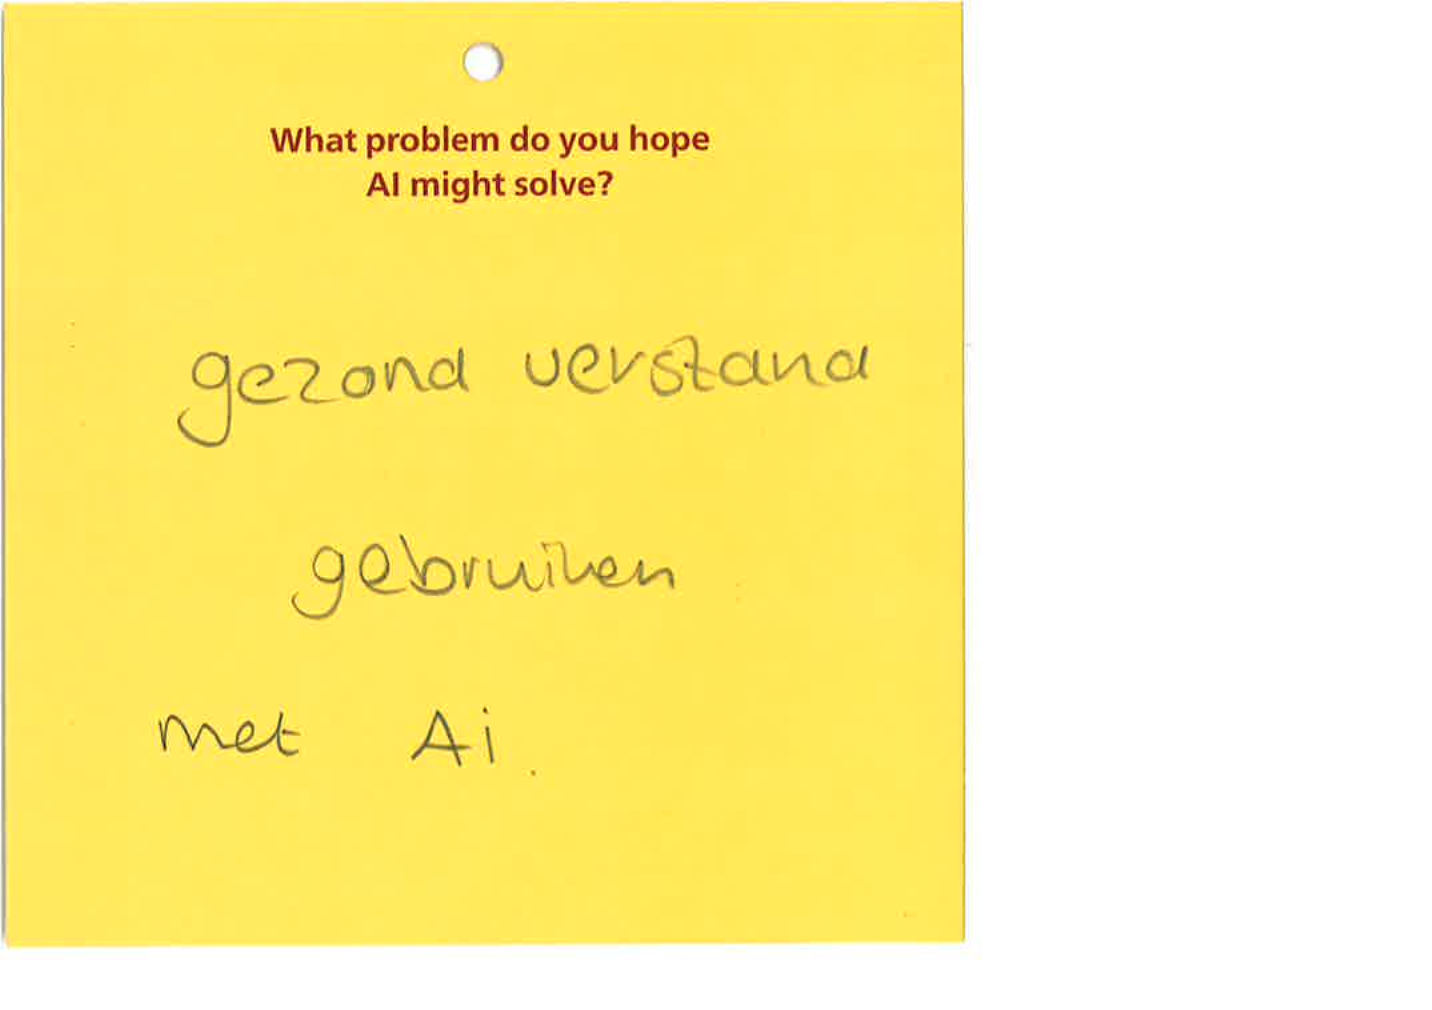 What problem do you hope
AI might solve?
gezond verstand
gebruiken
met Ai.